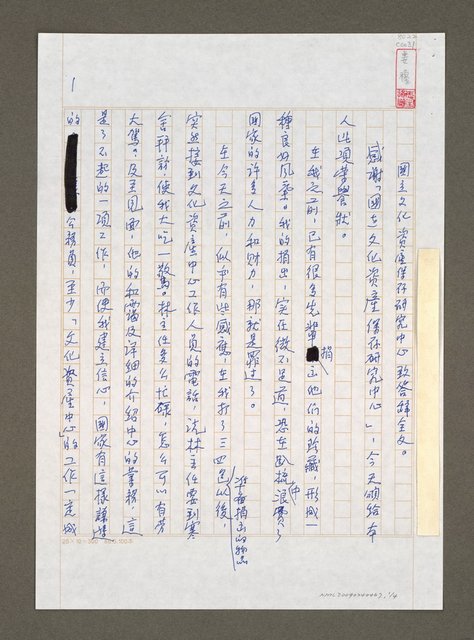 國立文化資產保存研究中心致答辭全文。
感謝「國立文化資產保存研究中心」,今天頒給本
人此項榮譽狀。
在我之前,已有很多先輩捐出他們的珍藏,形成一
種良好風氣。我的捐出,實在微不足道,恐在中浪費了
國家的許多人力和財力,那就是罪過了。
在今天之前,似乎有些感應,在我打了三四包以後,
準備捐出的物品
突然接到文化資產中心工作人員的電話,說林主任要到寒
舍拜訪使我大吃一驚。林主任多么忙碌,怎么可以有劳
大駕。及至見面,他的和藹及詳細的介紹中心的業務,這
是了不起的一項工作,而使我建立信心,國家有這樣謙遜
的 公務員,至少「文化資產中心」的工作一定成
1
20×10=200